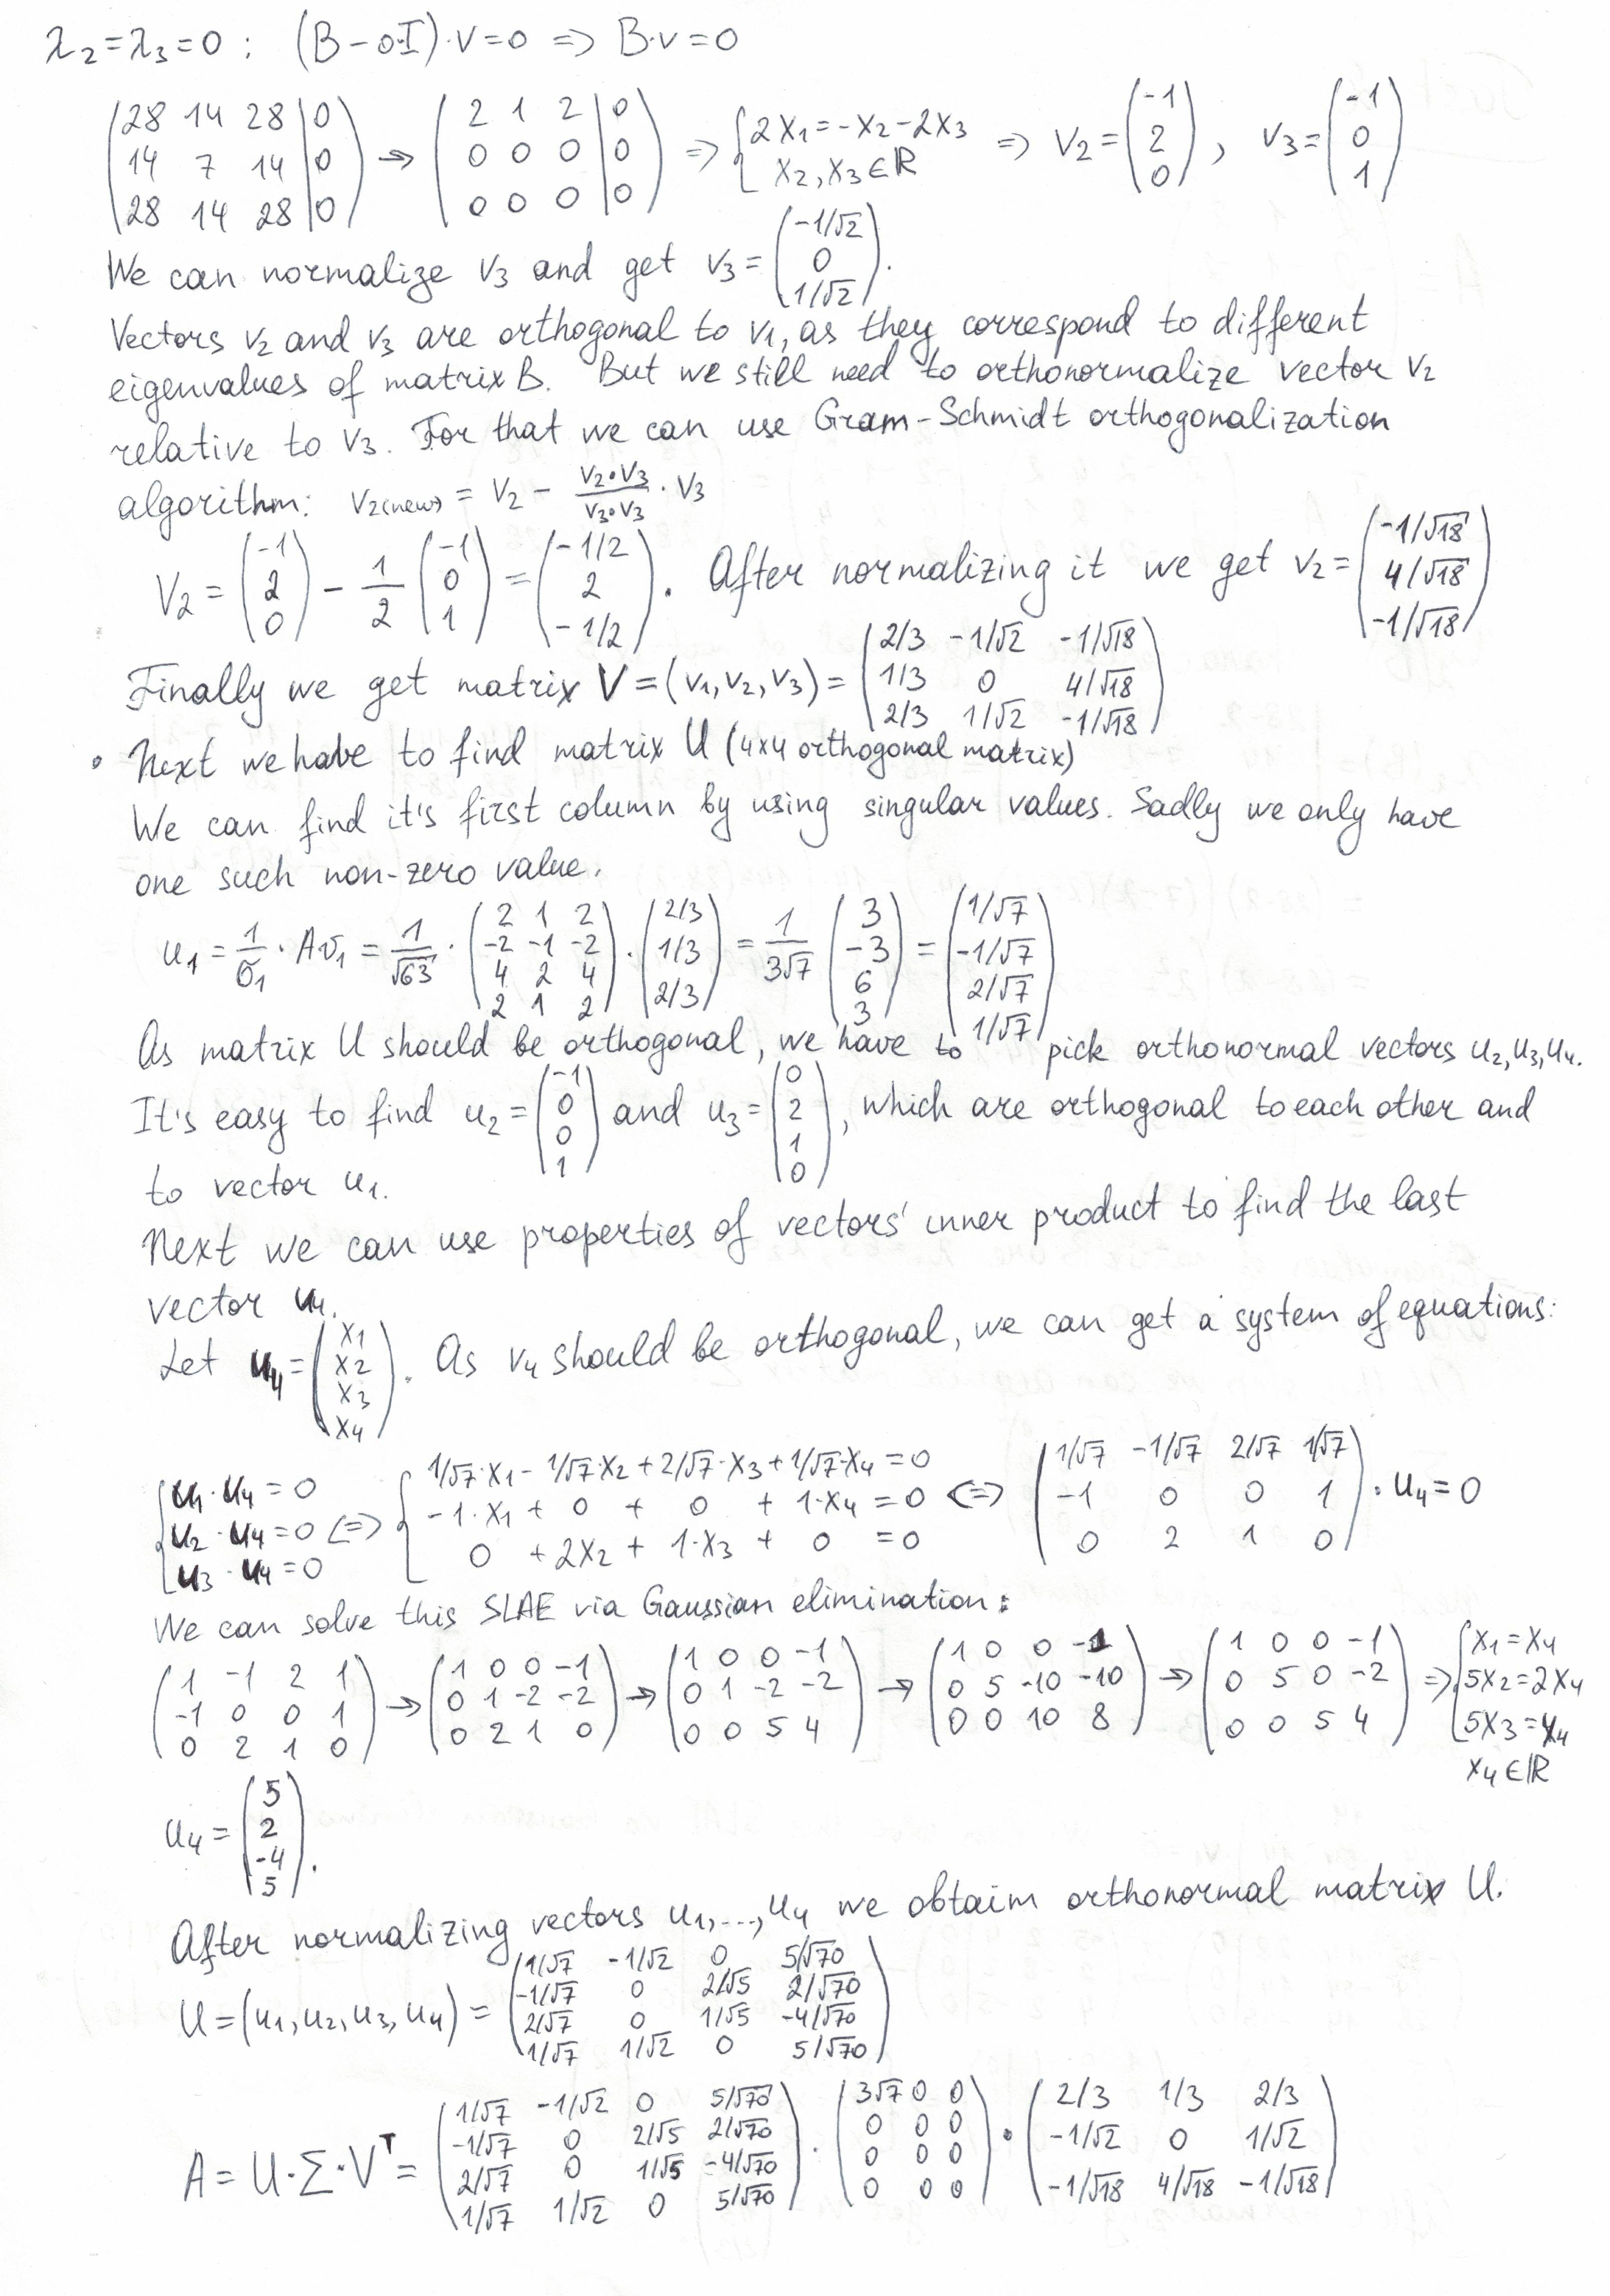 λ₂=λ₃=0 : (B-0·I)·v=0 => B·v=0
(28 14 28 | 0; 14 7 14 | 0; 28 14 28 | 0) → (2 1 2 | 0; 0 0 0 | 0; 0 0 0 | 0) => {2x₁=-x₂-2x₃; x₂,x₃∈ℝ => v₂=(-1; 2; 0), v₃=(-1; 0; 1)
We can normalize v₃ and get v₃=(-1/√2; 0; 1/√2).
Vectors v₂ and v₃ are orthogonal to v₁, as they correspond to different
eigenvalues of matrix B. But we still need to orthonormalize vector v₂
relative to v₃. For that we can use Gram-Schmidt orthogonalization
algorithm: v₂(new) = v₂ - (v₂•v₃)/(v₃•v₃) · v₃
V₂ = (-1; 2; 0) - 1/2 (-1; 0; 1) = (-1/2; 2; -1/2). After normalizing it we get v₂=(-1/√18; 4/√18; -1/√18)
Finally we get matrix V=(v₁,v₂,v₃)=(2/3 -1/√2 -1/√18; 1/3 0 4/√18; 2/3 1/√2 -1/√18)
• Next we have to find matrix U (4x4 orthogonal matrix)
We can find it's first column by using singular values. Sadly we only have
one such non-zero value.
u₁ = 1/σ₁ · Av₁ = 1/√63 · (2 1 2; -2 -1 -2; 4 2 4; 2 1 2) · (2/3; 1/3; 2/3) = 1/3√7 (3; -3; 6; 3) = (1/√7; -1/√7; 2/√7; 1/√7)
As matrix U should be orthogonal, we have to pick orthonormal vectors u₂,u₃,u₄.
It's easy to find u₂=(-1; 0; 0; 1) and u₃=(0; 2; 1; 0), which are orthogonal to each other and
to vector u₁.
Next we can use properties of vectors' inner product to find the last
vector u₄.
Let u₄=(x₁; x₂; x₃; x₄). As v₄ should be orthogonal, we can get a system of equations:
{u₁·u₄=0; u₂·u₄=0; u₃·u₄=0 <=> {1/√7·x₁-1/√7·x₂+2/√7·x₃+1/√7·x₄=0; -1·x₁+0+0+1·x₄=0; 0+2x₂+1·x₃+0=0 <=> (1/√7 -1/√7 2/√7 1/√7; -1 0 0 1; 0 2 1 0)·u₄=0
We can solve this SLAE via Gaussian elimination:
(1 -1 2 1; -1 0 0 1; 0 2 1 0) → (1 0 0 -1; 0 1 -2 -2; 0 2 1 0) → (1 0 0 -1; 0 1 -2 -2; 0 0 5 4) → (1 0 0 -1; 0 5 -10 -10; 0 0 10 8) → (1 0 0 -1; 0 5 0 -2; 0 0 5 4) => {x₁=x₄; 5x₂=2x₄; 5x₃=x₄; x₄∈ℝ
u₄=(5; 2; -4; 5).
After normalizing vectors u₁,...,u₄ we obtaim orthonormal matrix U.
U=(u₁,u₂,u₃,u₄) = (1/√7 -1/√2 0 5/√70; -1/√7 0 2/√5 2/√70; 2/√7 0 1/√5 -4/√70; 1/√7 1/√2 0 5/√70)
A = U·Σ·Vᵀ = (1/√7 -1/√2 0 5/√70; -1/√7 0 2/√5 2/√70; 2/√7 0 1/√5 -4/√70; 1/√7 1/√2 0 5/√70) · (3√7 0 0; 0 0 0; 0 0 0; 0 0 0) · (2/3 1/3 2/3; -1/√2 0 1/√2; -1/√18 4/√18 -1/√18)